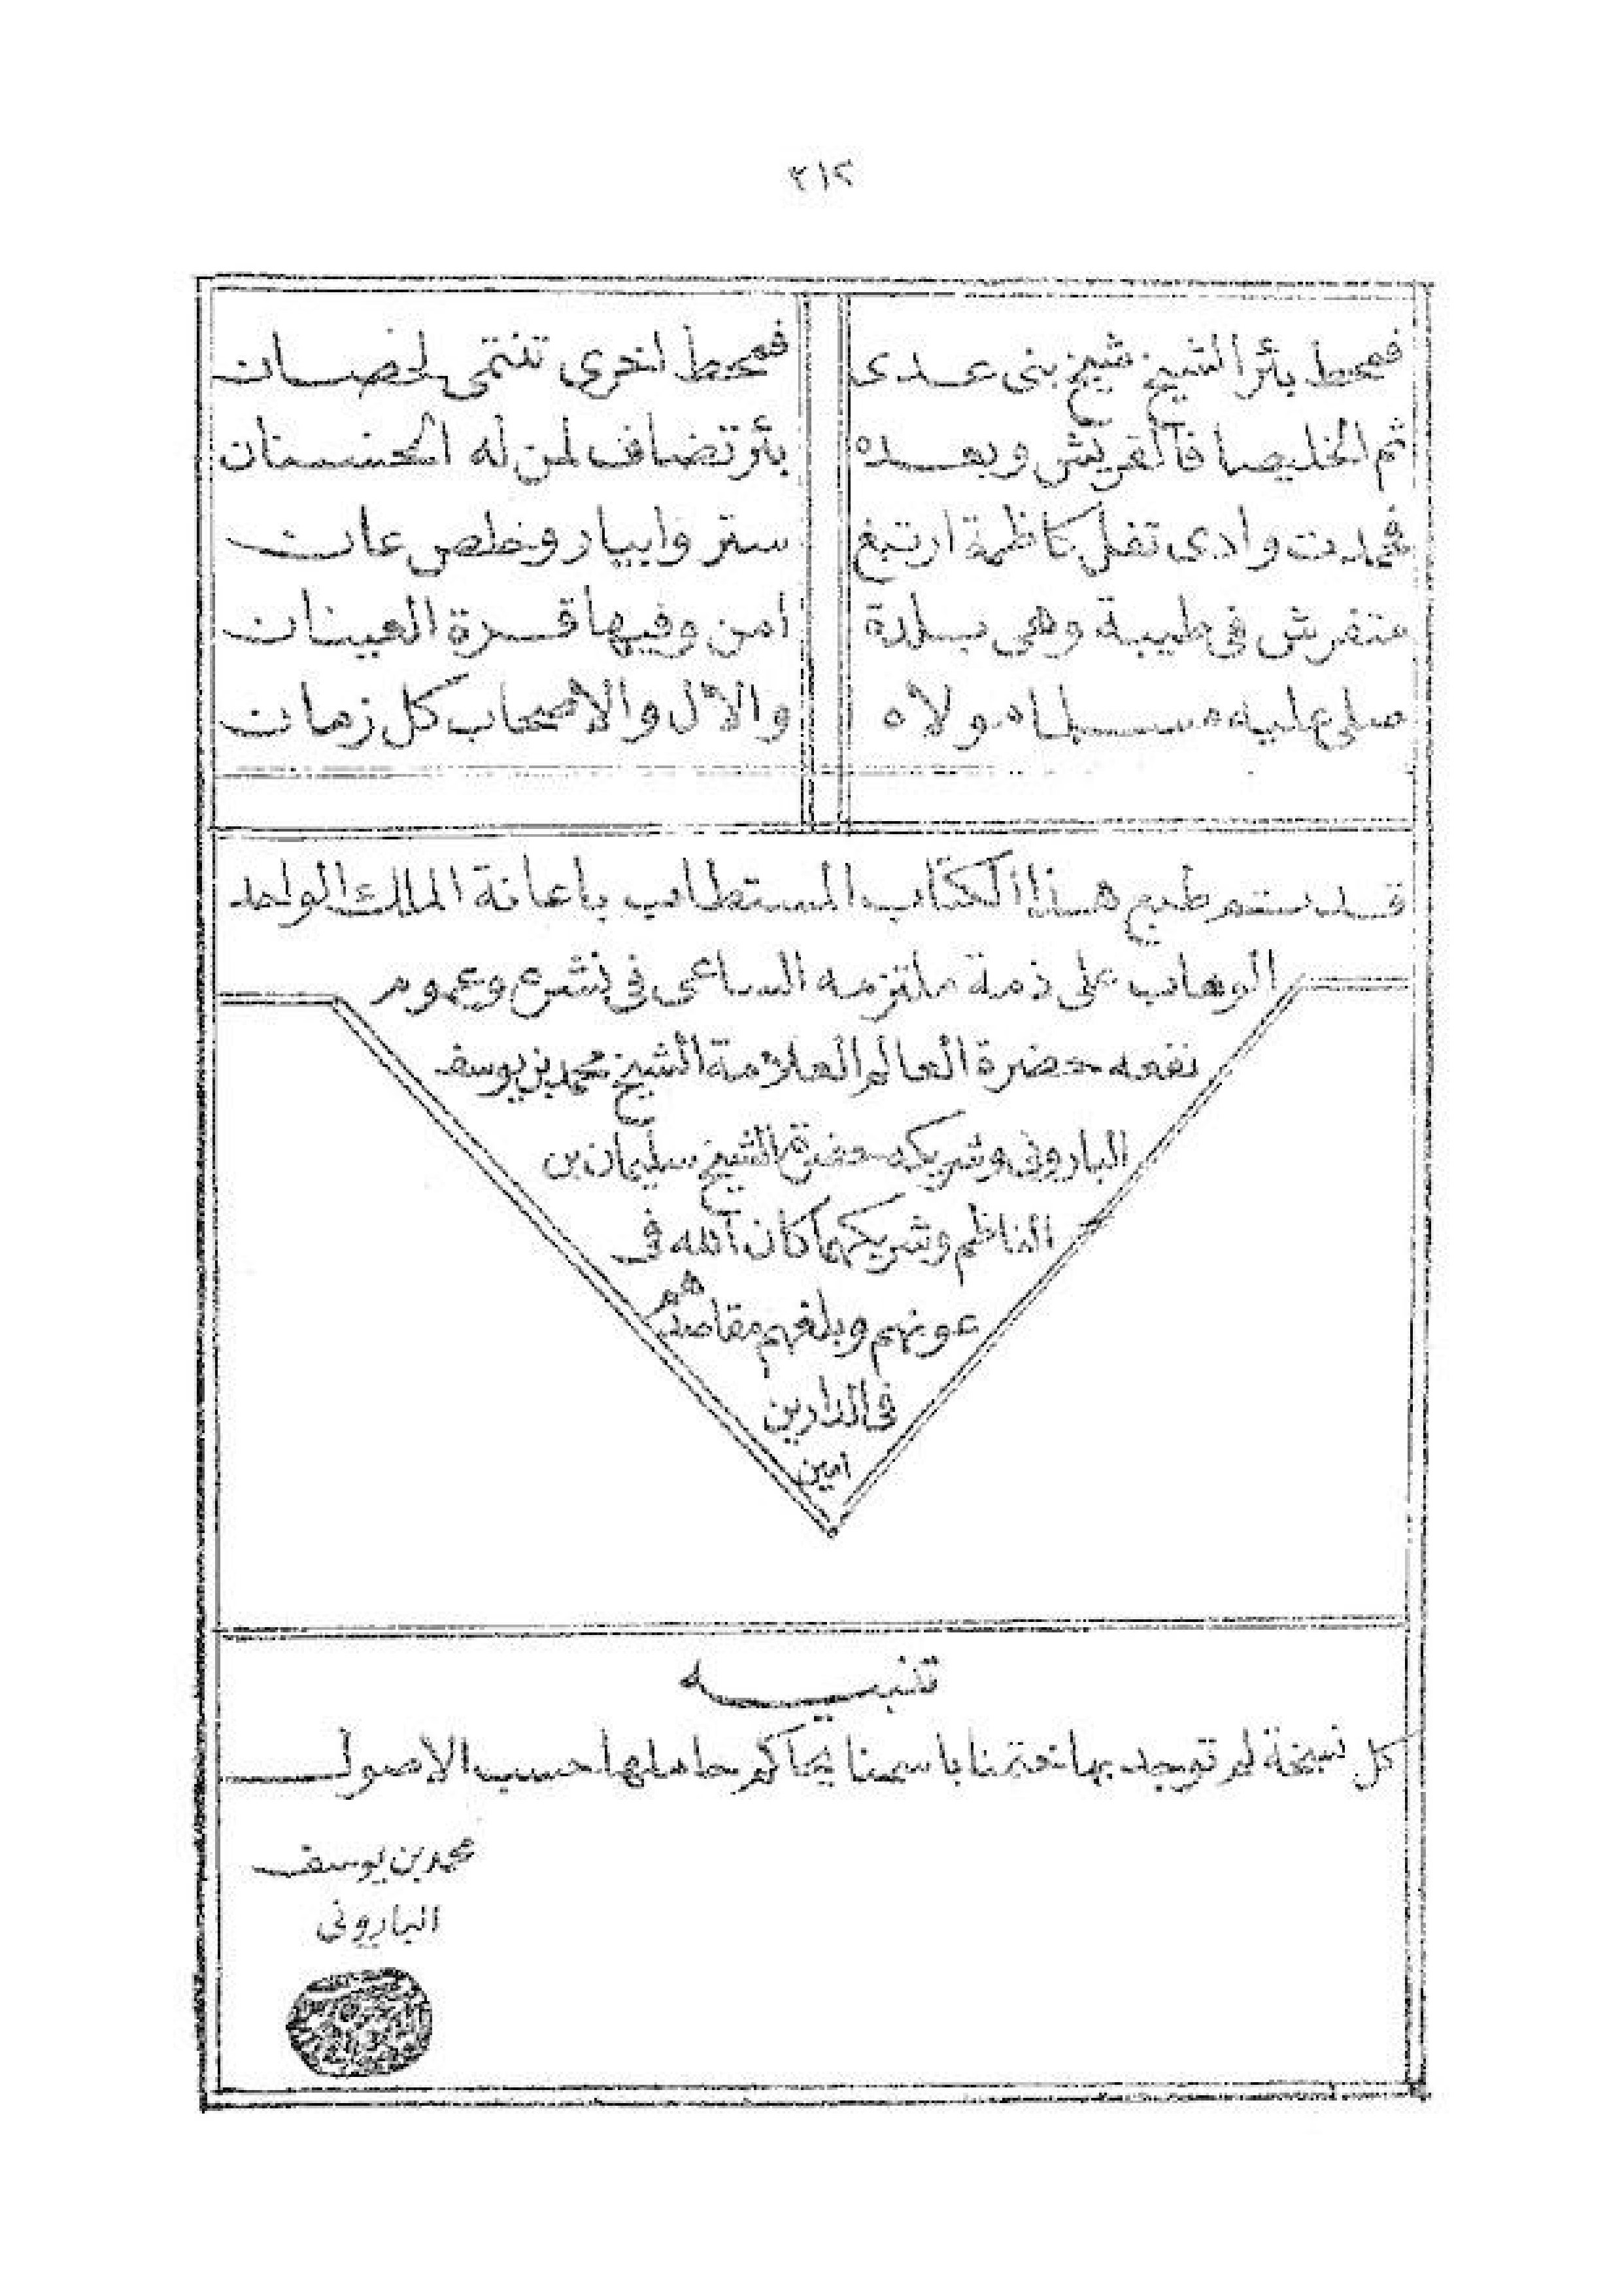 ٣١٢
فمحط بئر الشيخ شيخ بنى عدى فمحط اخرى تنتمى لحصان
ثم الخليصا فالقريش وبعده بئر تضاف لمن له الحسنان
وادى تفل كاظمة ارتبغ ستر وابيار وخلص عان
فى طيبة وهى بلدة امن وفيها قرة العينان
صلى عليه مسلما مولاه والآل والاصحاب كل زمان
قد ستم طبع هذا الكتاب المستطاب باعانة الملك الواحد
الوهاب على ذمة ملتزمه الساعى فى نشره وعموم
نفعه حضرة العالم العلامة الشيخ محمد بن يوسف
البارونى وشريكه حضرة الشيخ سليمان بن
الناظم وشريكهما كان الله فى
عونهم وبلغهم مقاصدهم
فى الدارين
امين
تنبيه
كل نسخة لم توجد بها ختمنا باسمنا يحاكم حاملها حسب الاصول
محمد بن يوسف
البارونى